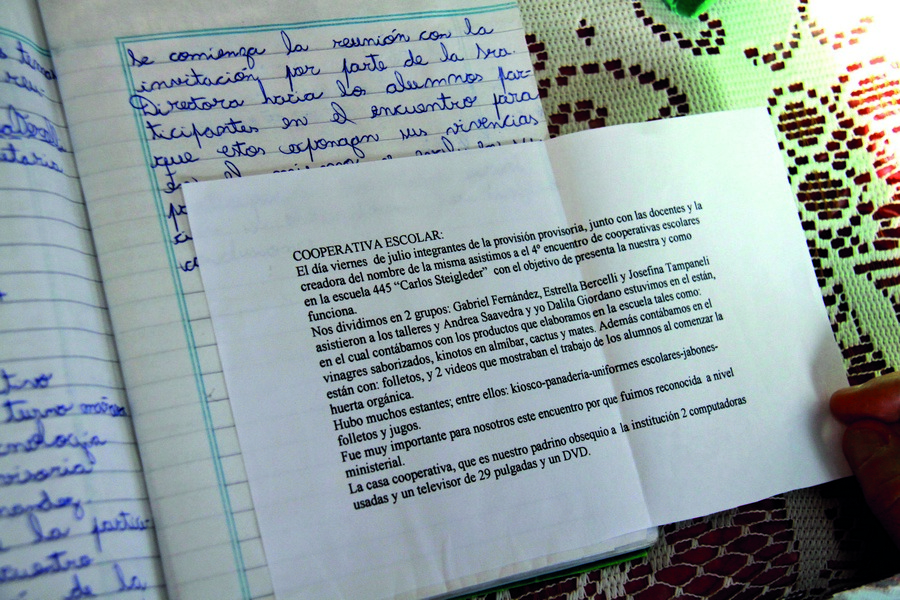 Se comienza la reunión con la
invitación por parte de la Sra.
Directora hacia los alumnos par-
ticipantes en el encuentro para
que estos expongan sus vivencias
COOPERATIVA ESCOLAR:
El día viernes de julio integrantes de la provisión provisoria, junto con las docentes y la
creadora del nombre de la misma asistimos a el 4º encuentro de cooperativas escolares
en la escuela 445 “Carlos Steigleder” con el objetivo de presenta la nuestra y como
funciona.
Nos dividimos en 2 grupos: Gabriel Fernández, Estrella Bercelli y Josefina Tampaneli
asistieron a los talleres y Andrea Saavedra y yo Dalila Giordano estuvimos en el están,
en el cual contábamos con los productos que elaboramos en la escuela tales como:
vinagres saborizados, kinotos en almíbar, cactus y mates. Además contábamos en el
están con: folletos, y 2 videos que mostraban el trabajo de los alumnos al comenzar la
huerta orgánica.
Hubo muchos estantes; entre ellos: kiosco-panadería-uniformes escolares-jabones-
folletos y jugos.
Fue muy importante para nosotros este encuentro por que fuimos reconocida a nivel
ministerial.
La casa cooperativa, que es nuestro padrino obsequio a la institución 2 computadoras
usadas y un televisor de 29 pulgadas y un DVD.
turno
la
de la